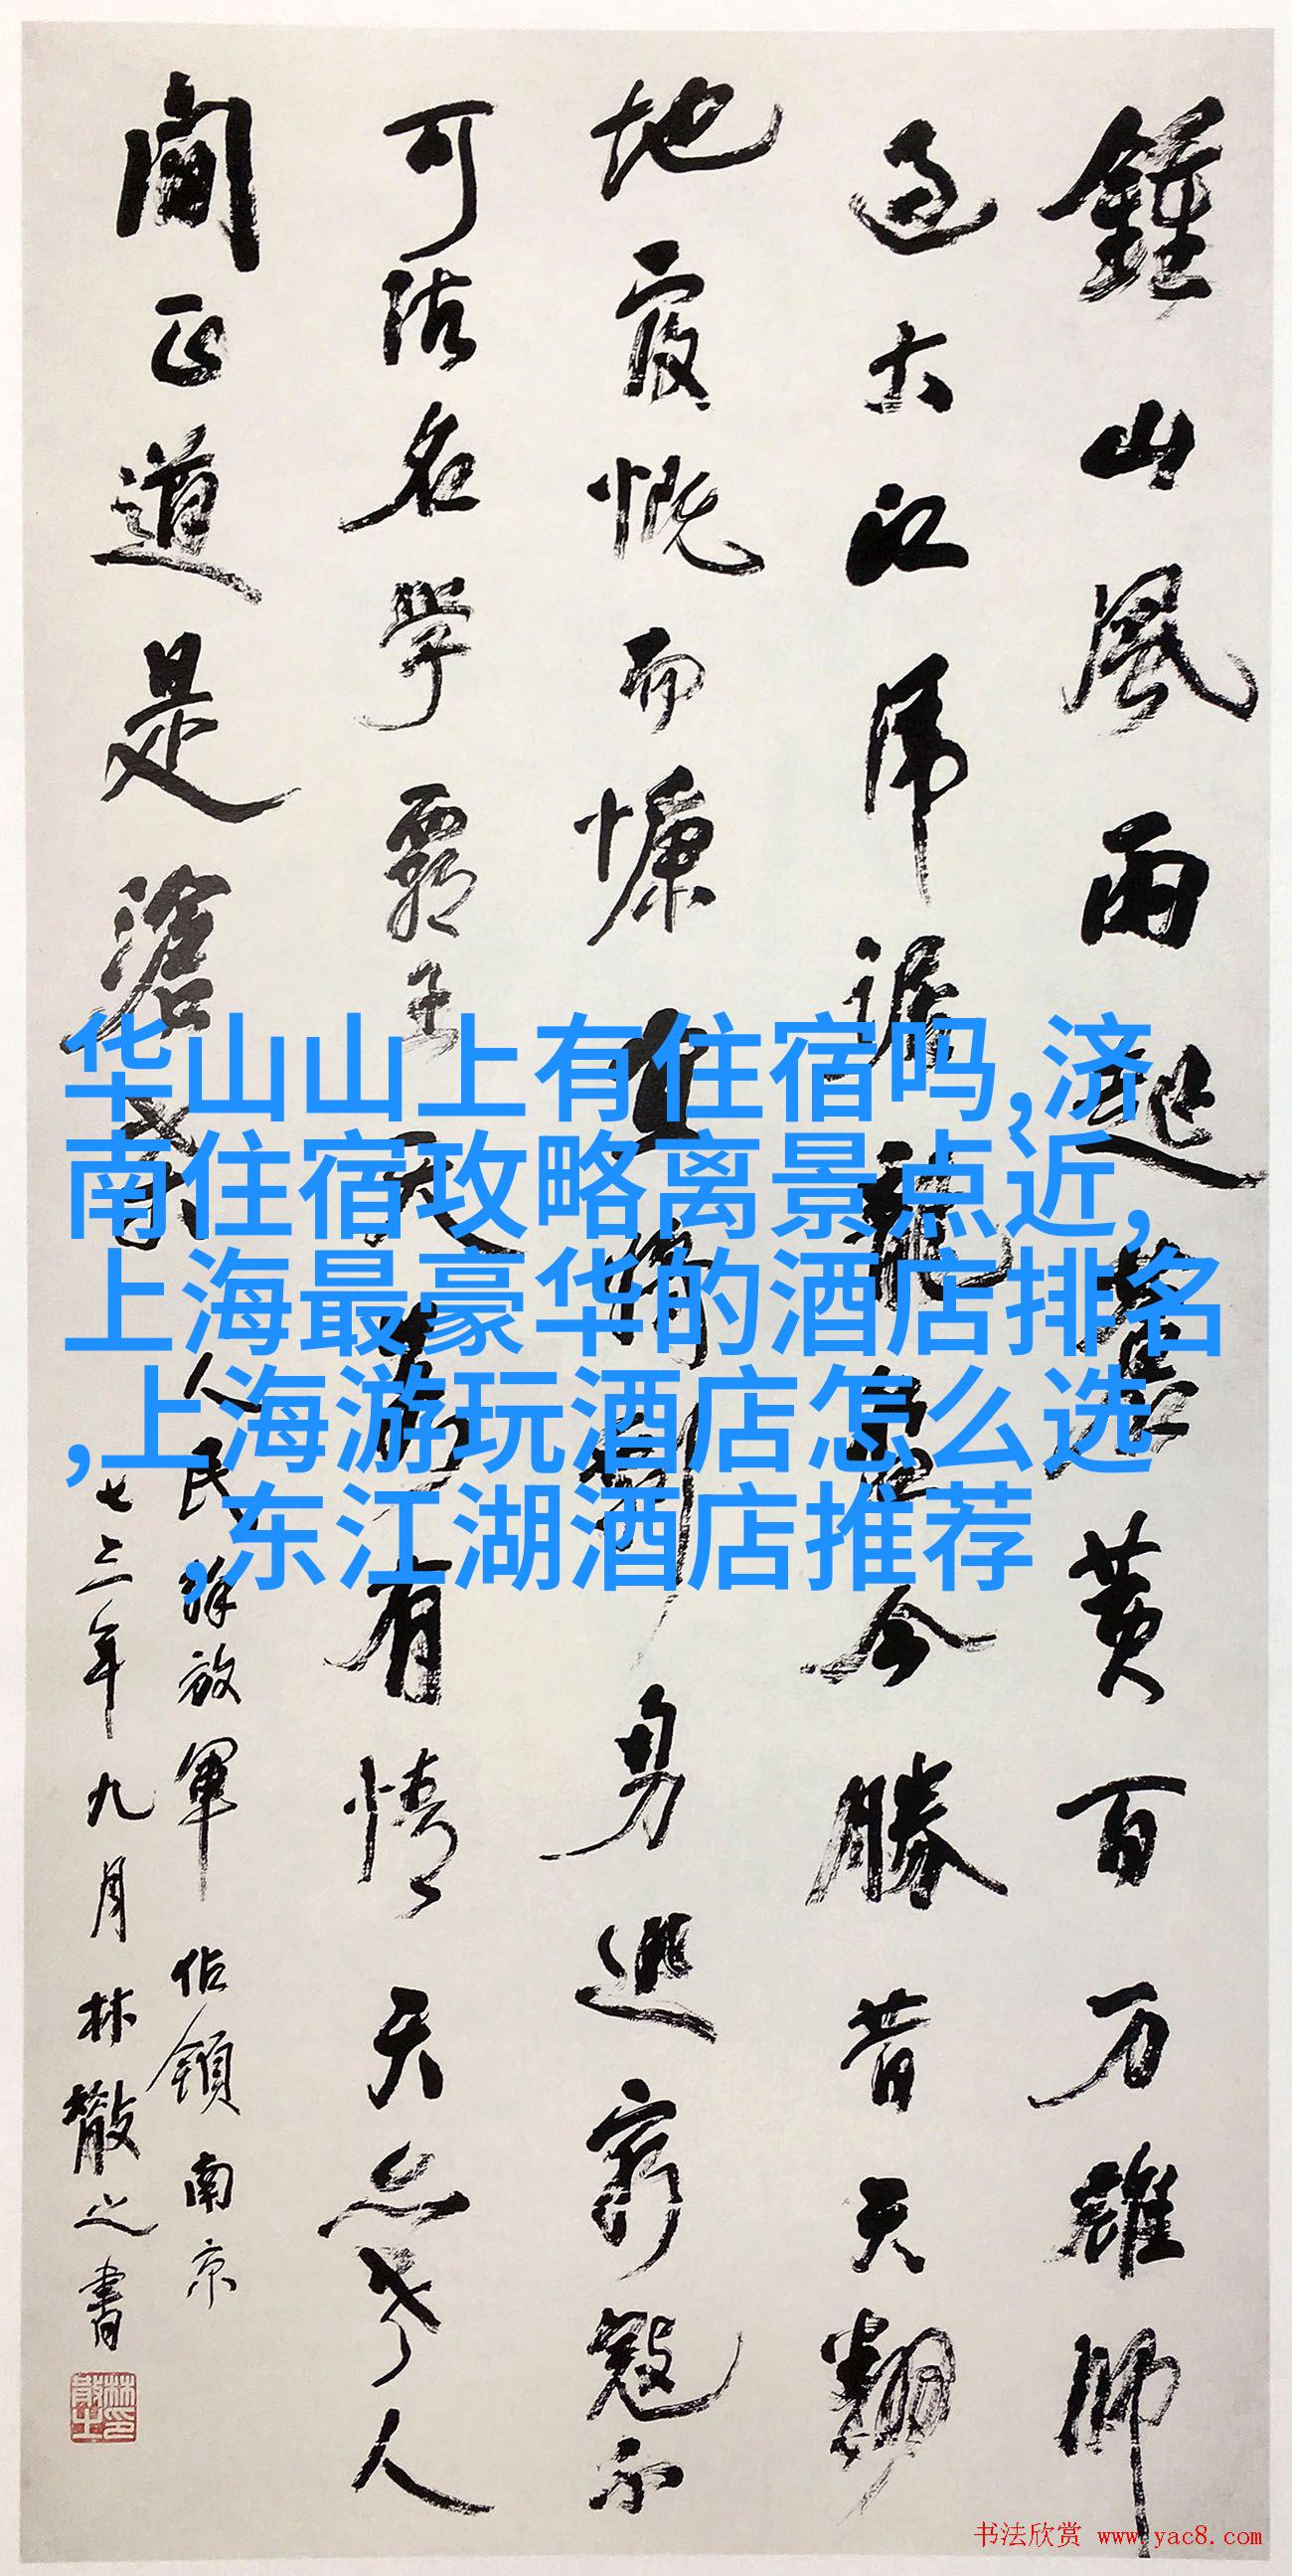 鍾山風雨起蒼黄百万雄師
过大江虎踞龍盘今勝昔天翻
地覆慨而慷宜将剩勇追窮寇不
可沽名學霸王天若有情天亦老人
間正道是滄桑
人民解放軍佔領南京
七三年九月林散之書
林散之印
华山山上有住宿吗,济
南住宿攻略离景点近,
上海最豪华的酒店排名
,上海游玩酒店怎么选
,东江湖酒店推荐
书法欣赏 www.yac8.com